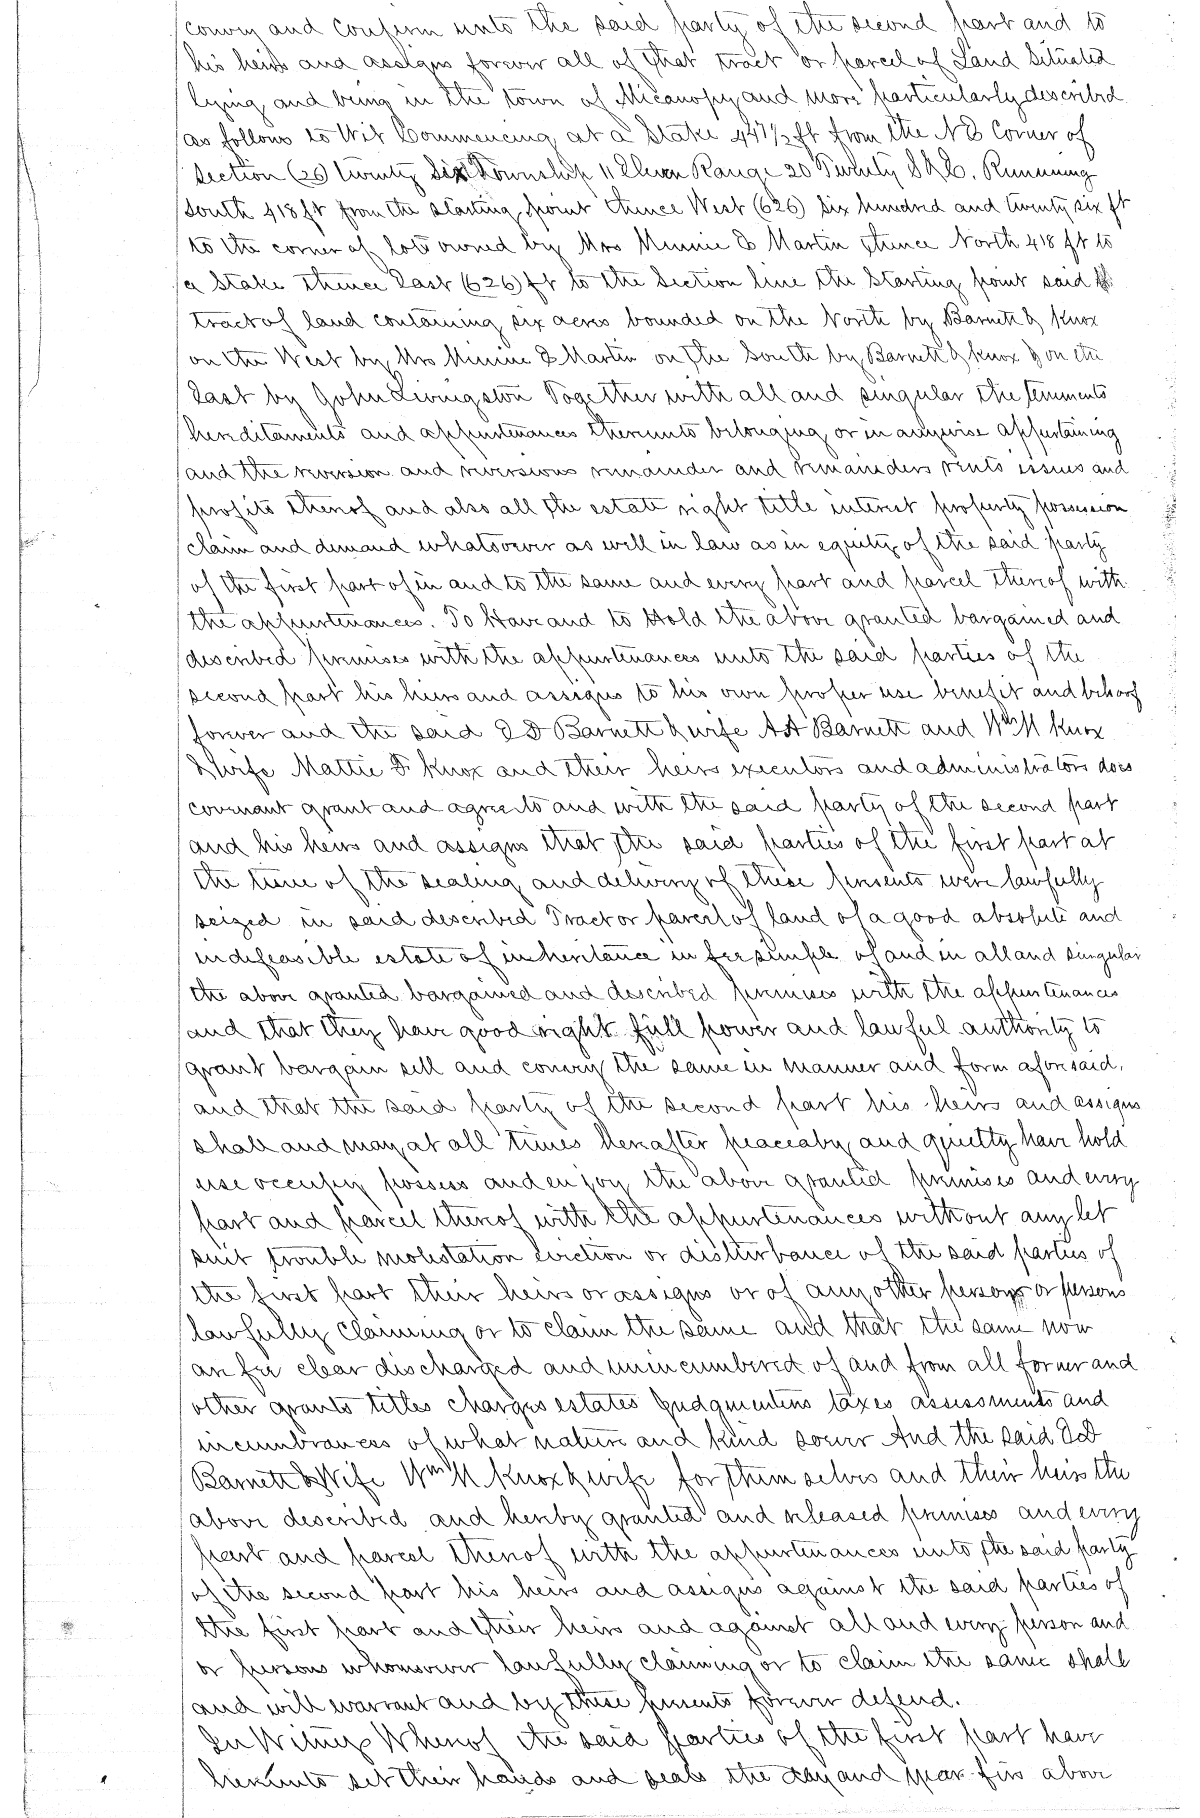 convey and confirm unto the said party of the second part and to
his heirs and assigns forever all of that tract or parcel of Land Situated
lying and being in the town of Micanopy and more particularly described
as follows to Wit Commencing at a Stake 447½ ft from the NE Corner of
Section (26) twenty Six Township 11 Eleven Range 20 Twenty S & E. Running
South 418 ft from the starting point thence West (626) Six hundred and twenty six ft
to the corner of lots owned by Mrs Minnie E Martin thence North 418 ft to
a Stake thence East (626) ft to the Section line the Starting point said
tract of land containing six acres bounded on the North by Barnett & Knox
on the West by Mrs Minnie E Martin on the South by Barnett & Knox & on the
East by John Livingston Together with all and singular the tenements
hereditaments and appurtenances thereunto belonging or in anywise appertaining
and the reversion and reversions remainder and remainders rents issues and
profits thereof and also all the estate right title interest property possession
claim and demand whatsoever as well in law as in equity of the said party
of the first part of in and to the same and every part and parcel thereof with
the appurtenances. To Have and to Hold the above granted bargained and
described premises with the appurtenances unto the said parties of the
second part his heirs and assigns to his own proper use benefit and behoof
forever and the said E D Barnett & wife A A Barnett and Wm M Knox
& Wife Mattie F Knox and their heirs executors and administrators does
covenant grant and agree to and with the said party of the second part
and his heirs and assigns that the said parties of the first part at
the time of the sealing and delivery of these presents were lawfully
seized in said described Tract or parcel of land of a good absolute and
indefeasible estate of inheritance in fee simple of and in all and singular
the above granted bargained and described premises with the appurtenances
and that they have good right full power and lawful authority to
grant bargain sell and convey the same in manner and form aforesaid,
and that the said party of the second part his heirs and assigns
shall and may at all times hereafter peaceaby and quietty have hold
use occupy possess and enjoy the above granted premises and every
part and parcel thereof with the appurtenances without any let
suit trouble molestation eviction or disturbance of the said parties of
the first part their heirs or assigns or of any other persons or persons
lawfully claiming or to claim the same and that the same now
are free clear discharged and unincumbered of and from all former and
other grants titles charges estates judgments taxes assessments and
incumbrances of what nature and kind soever And the said E D
Barnett & Wife Wm M Knox & wife for them selves and their heirs the
above described and hereby granted and released premises and every
part and parcel thereof with the appurtenances unto the said party
of the second part his heirs and assigns against the said parties of
the first part and their heirs and against all and every person and
or persons whomsoever lawfully claiming or to claim the same shall
and will warrant and by these presents forever defend.
In Witness Whereof the said parties of the first part have
hereunto set their hands and seals the day and year firs above